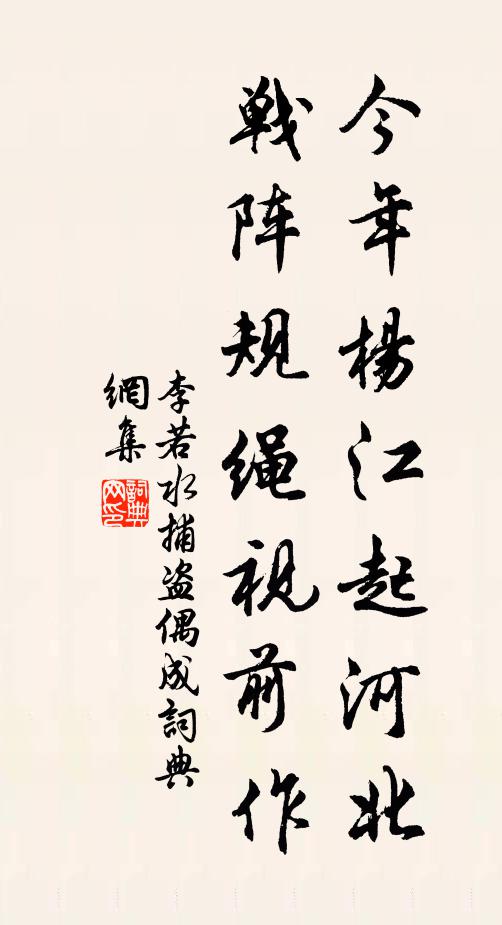 今年楊江起河北
戦阵规绳視前作
李若水捕盗偶成詞典
網集
詞典
网印